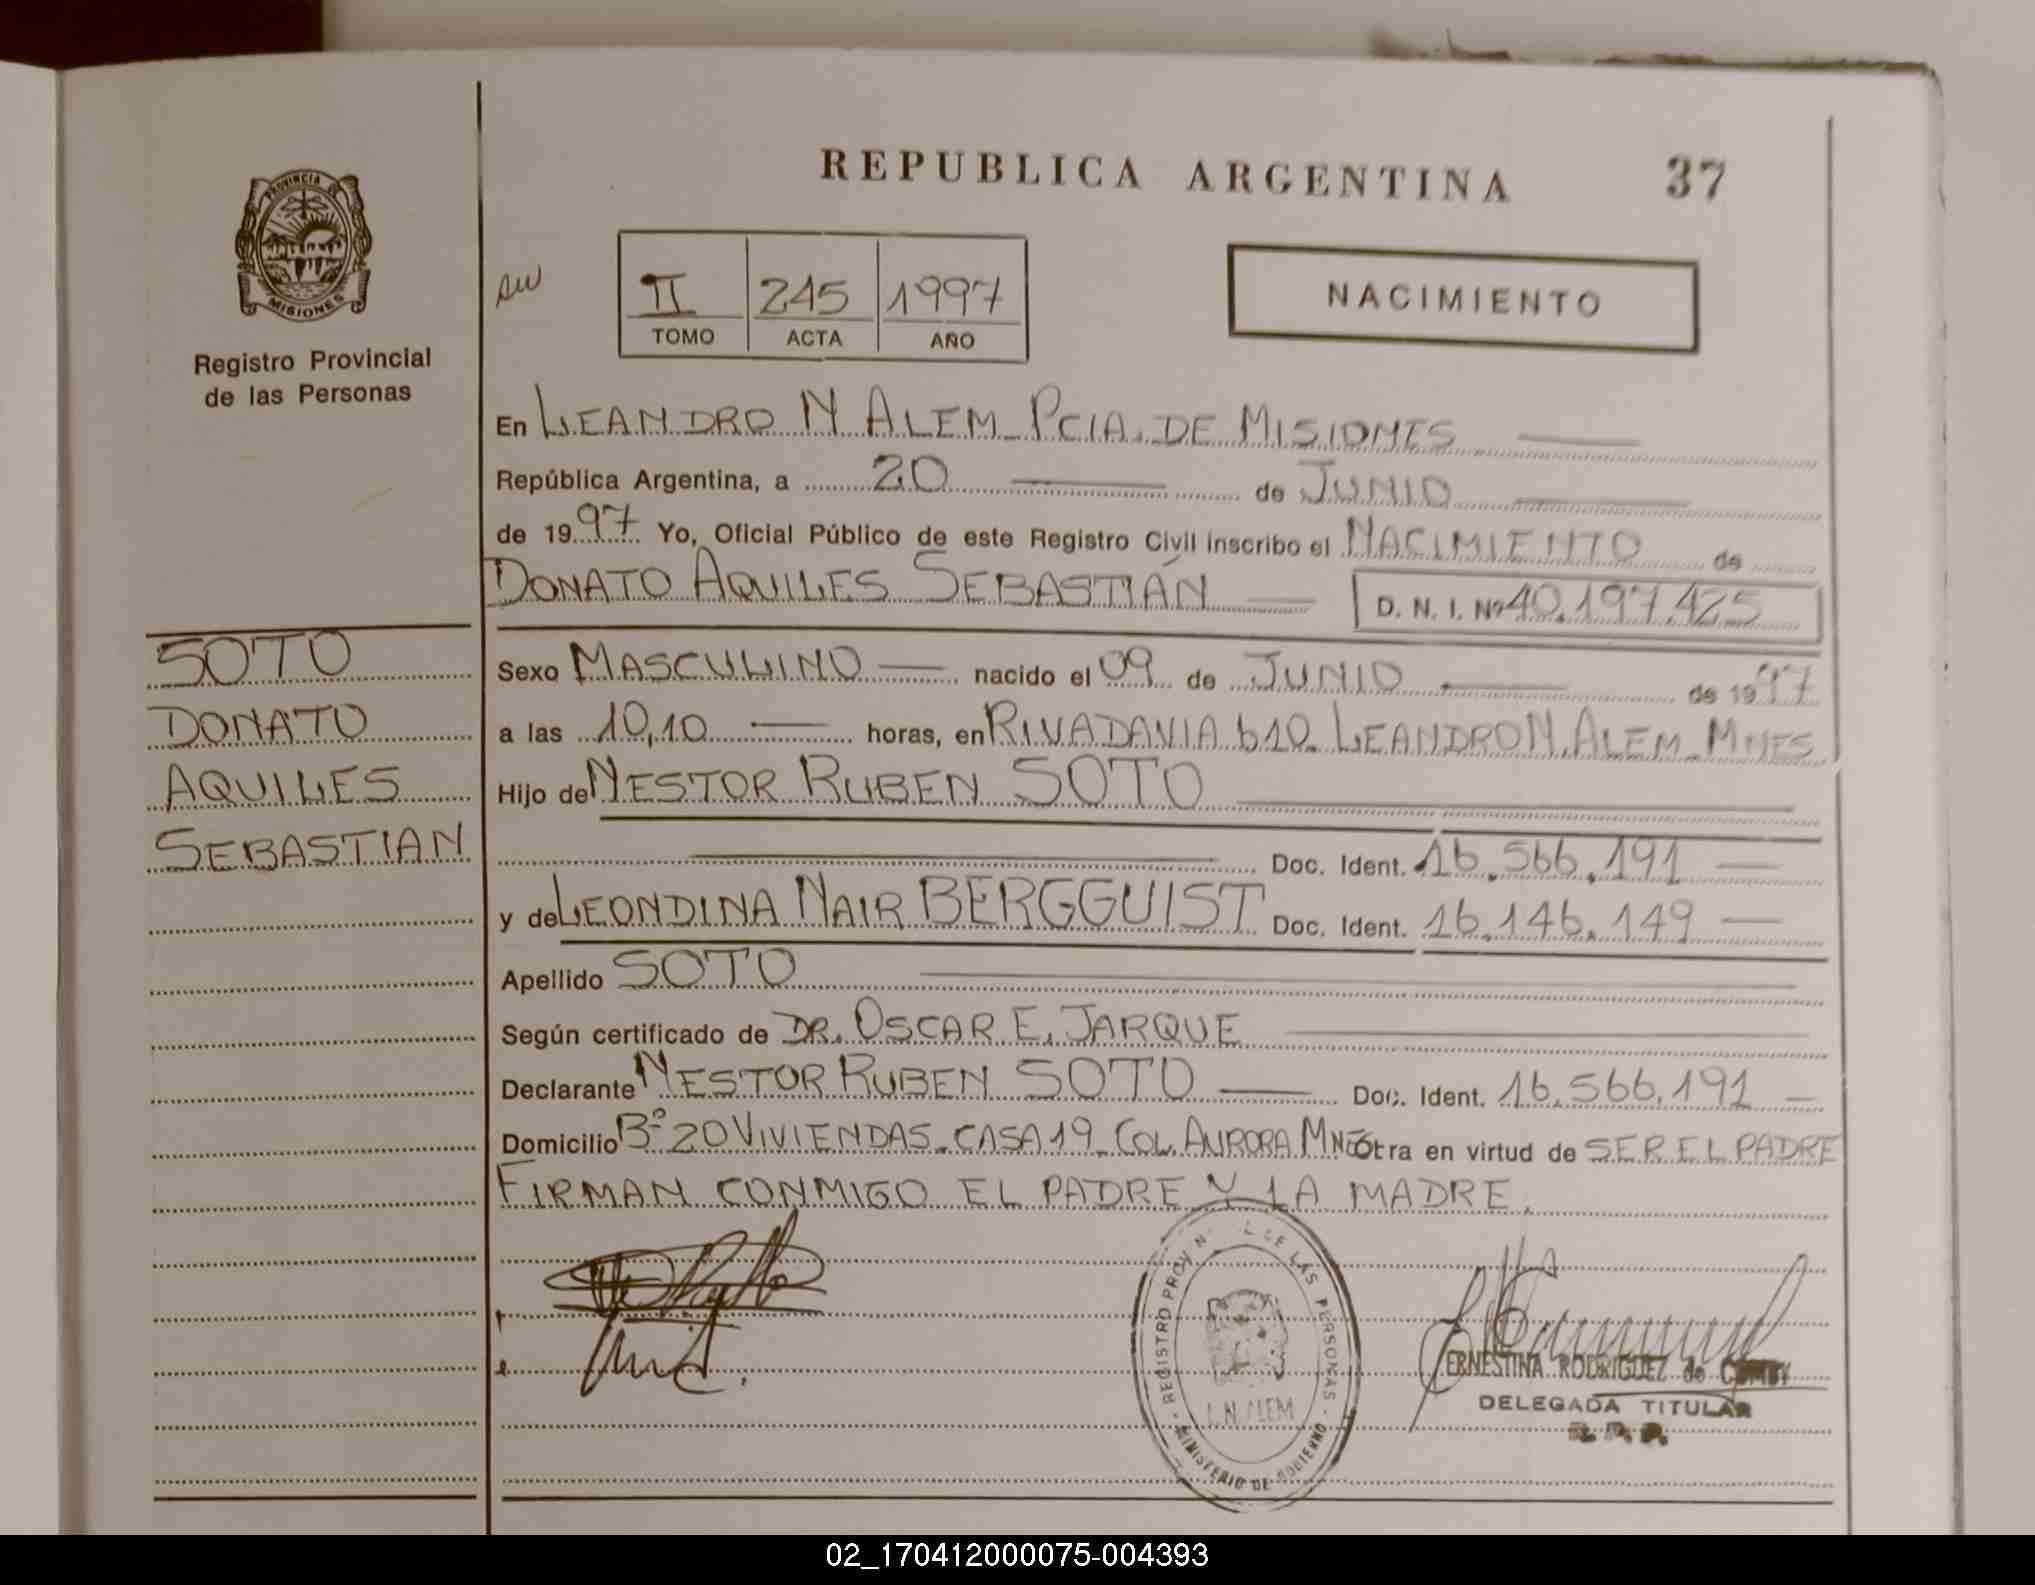 REPUBLICA ARGENTINA 37
PROVINCIA DE
MISIONES
Registro Provincial
de las Personas
II 245 1997
TOMO ACTA AÑO
NACIMIENTO
En LEANDRO N ALEM_PCIA. DE MISIONES
República Argentina, a 20 de JUNIO
de 1997 Yo, Oficial Público de este Registro Civil inscribo el NACIMIENTO de
DONATO AQUILES SEBASTIÁN D. N. I. Nº 40.197.425
SOTO
DONATO
AQUILES
SEBASTIAN
Sexo MASCULINO nacido el 09 de JUNIO de 1997
a las 10,10 horas, en RIVADAVIA 610_LEANDRO N. ALEM_MNES
Hijo de NESTOR RUBEN SOTO
Doc. Ident. 16.566.191
y de LEONDINA NAIR BERGGUIST Doc. Ident. 16.146.149
Apellido SOTO
Según certificado de DR. OSCAR E. JARQUE
Declarante NESTOR RUBEN SOTO Doc. Ident. 16.566.191
Domicilio Bº 20 VIVIENDAS_CASA 19_COL. AURORA MNES Obra en virtud de SER EL PADRE
FIRMAN CONMIGO EL PADRE Y LA MADRE.
REGISTRO PROVIN L DE LAS PERSONAS
L. N. ALEM
MINISTERIO DE GOBIERNO
ERNESTINA RODRIGUEZ de
DELEGADA TITULAR
R. P. P.
02_170412000075-004393